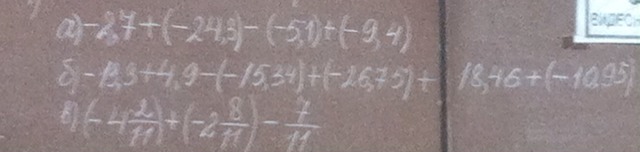 а) -2,7+(-24,3)-(-5,1)+(-9,4)
б) -13,3+4,9-(-15,34)+(-26,75)+ 18,46+(-10,95)
в) (-4 2/11)+(-2 8/11)- 7/11
ВИДЕО